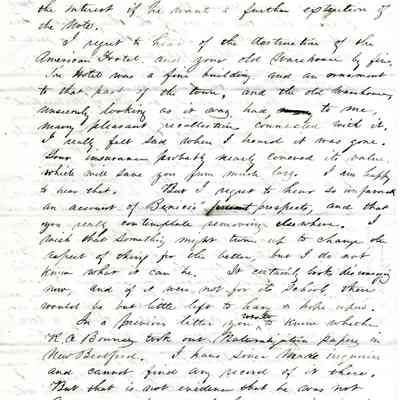 the interest if he want a further extention of
the Note.
I regret to hear of the destruction of the
American Hotel, and your old Warehouse by fire,
The Hotel was a fine building and an ornament
to that part of the town, and the old Warehouse,
unseemly looking as it was, had, to me,
many pleasant recollections connected with it.
I really felt sad when I heard it was gone.
Your insurance probably nearly covered its value,
which will save you from much loss. I am happy
to hear that. But I regret to hear so unfavorable
an account of Benicia's prospects, and that
you really contemplate removing elsewhere. I
wish that something might turn up to change the
aspect of things for the better, but I do not
know what it can be. It certainly looks discouraging
now, and if it were not for its Schools there
would be but little left to hang a hope upon.
In a previous letter you wanted to know whether
took out Naturalization papers in
New Bedford. I have since made inquiries
and cannot find any record of it there.
But that is not evidence that he was not